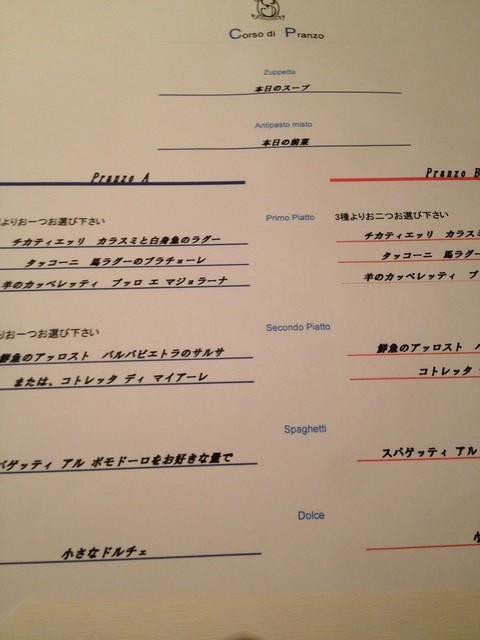 Corso di Pranzo
Zuppetta
本日のスープ
Antipasto misto
本日の前菜
Pranzo A
Pranzo B
よりお一つお選び下さい
Primo Piatto
3種よりお二つお選び下さい
チカティエッリ カラスミと白身魚のラグー
チカティエッリ カラスミ
タッコーニ 馬ラグーのブラチョーレ
タッコーニ 馬ラグー
羊のカッペレッティ ブッロ エ マジョラーナ
羊のカッペレッティ ブ
りお一つお選び下さい
Secondo Piatto
鮮魚のアッロスト バルバビエトラのサルサ
鮮魚のアッロスト
または、コトレッタ ディ マイアーレ
コトレッタ
Spaghetti
パゲッティ アル ポモドーロをお好きな量で
スパゲッティ アル
Dolce
小さなドルチェ